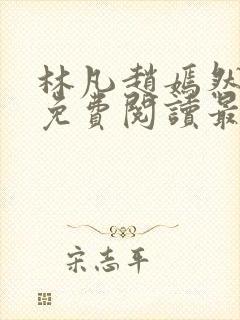 林凡趙嫣然
免費閱讀最
宋志平